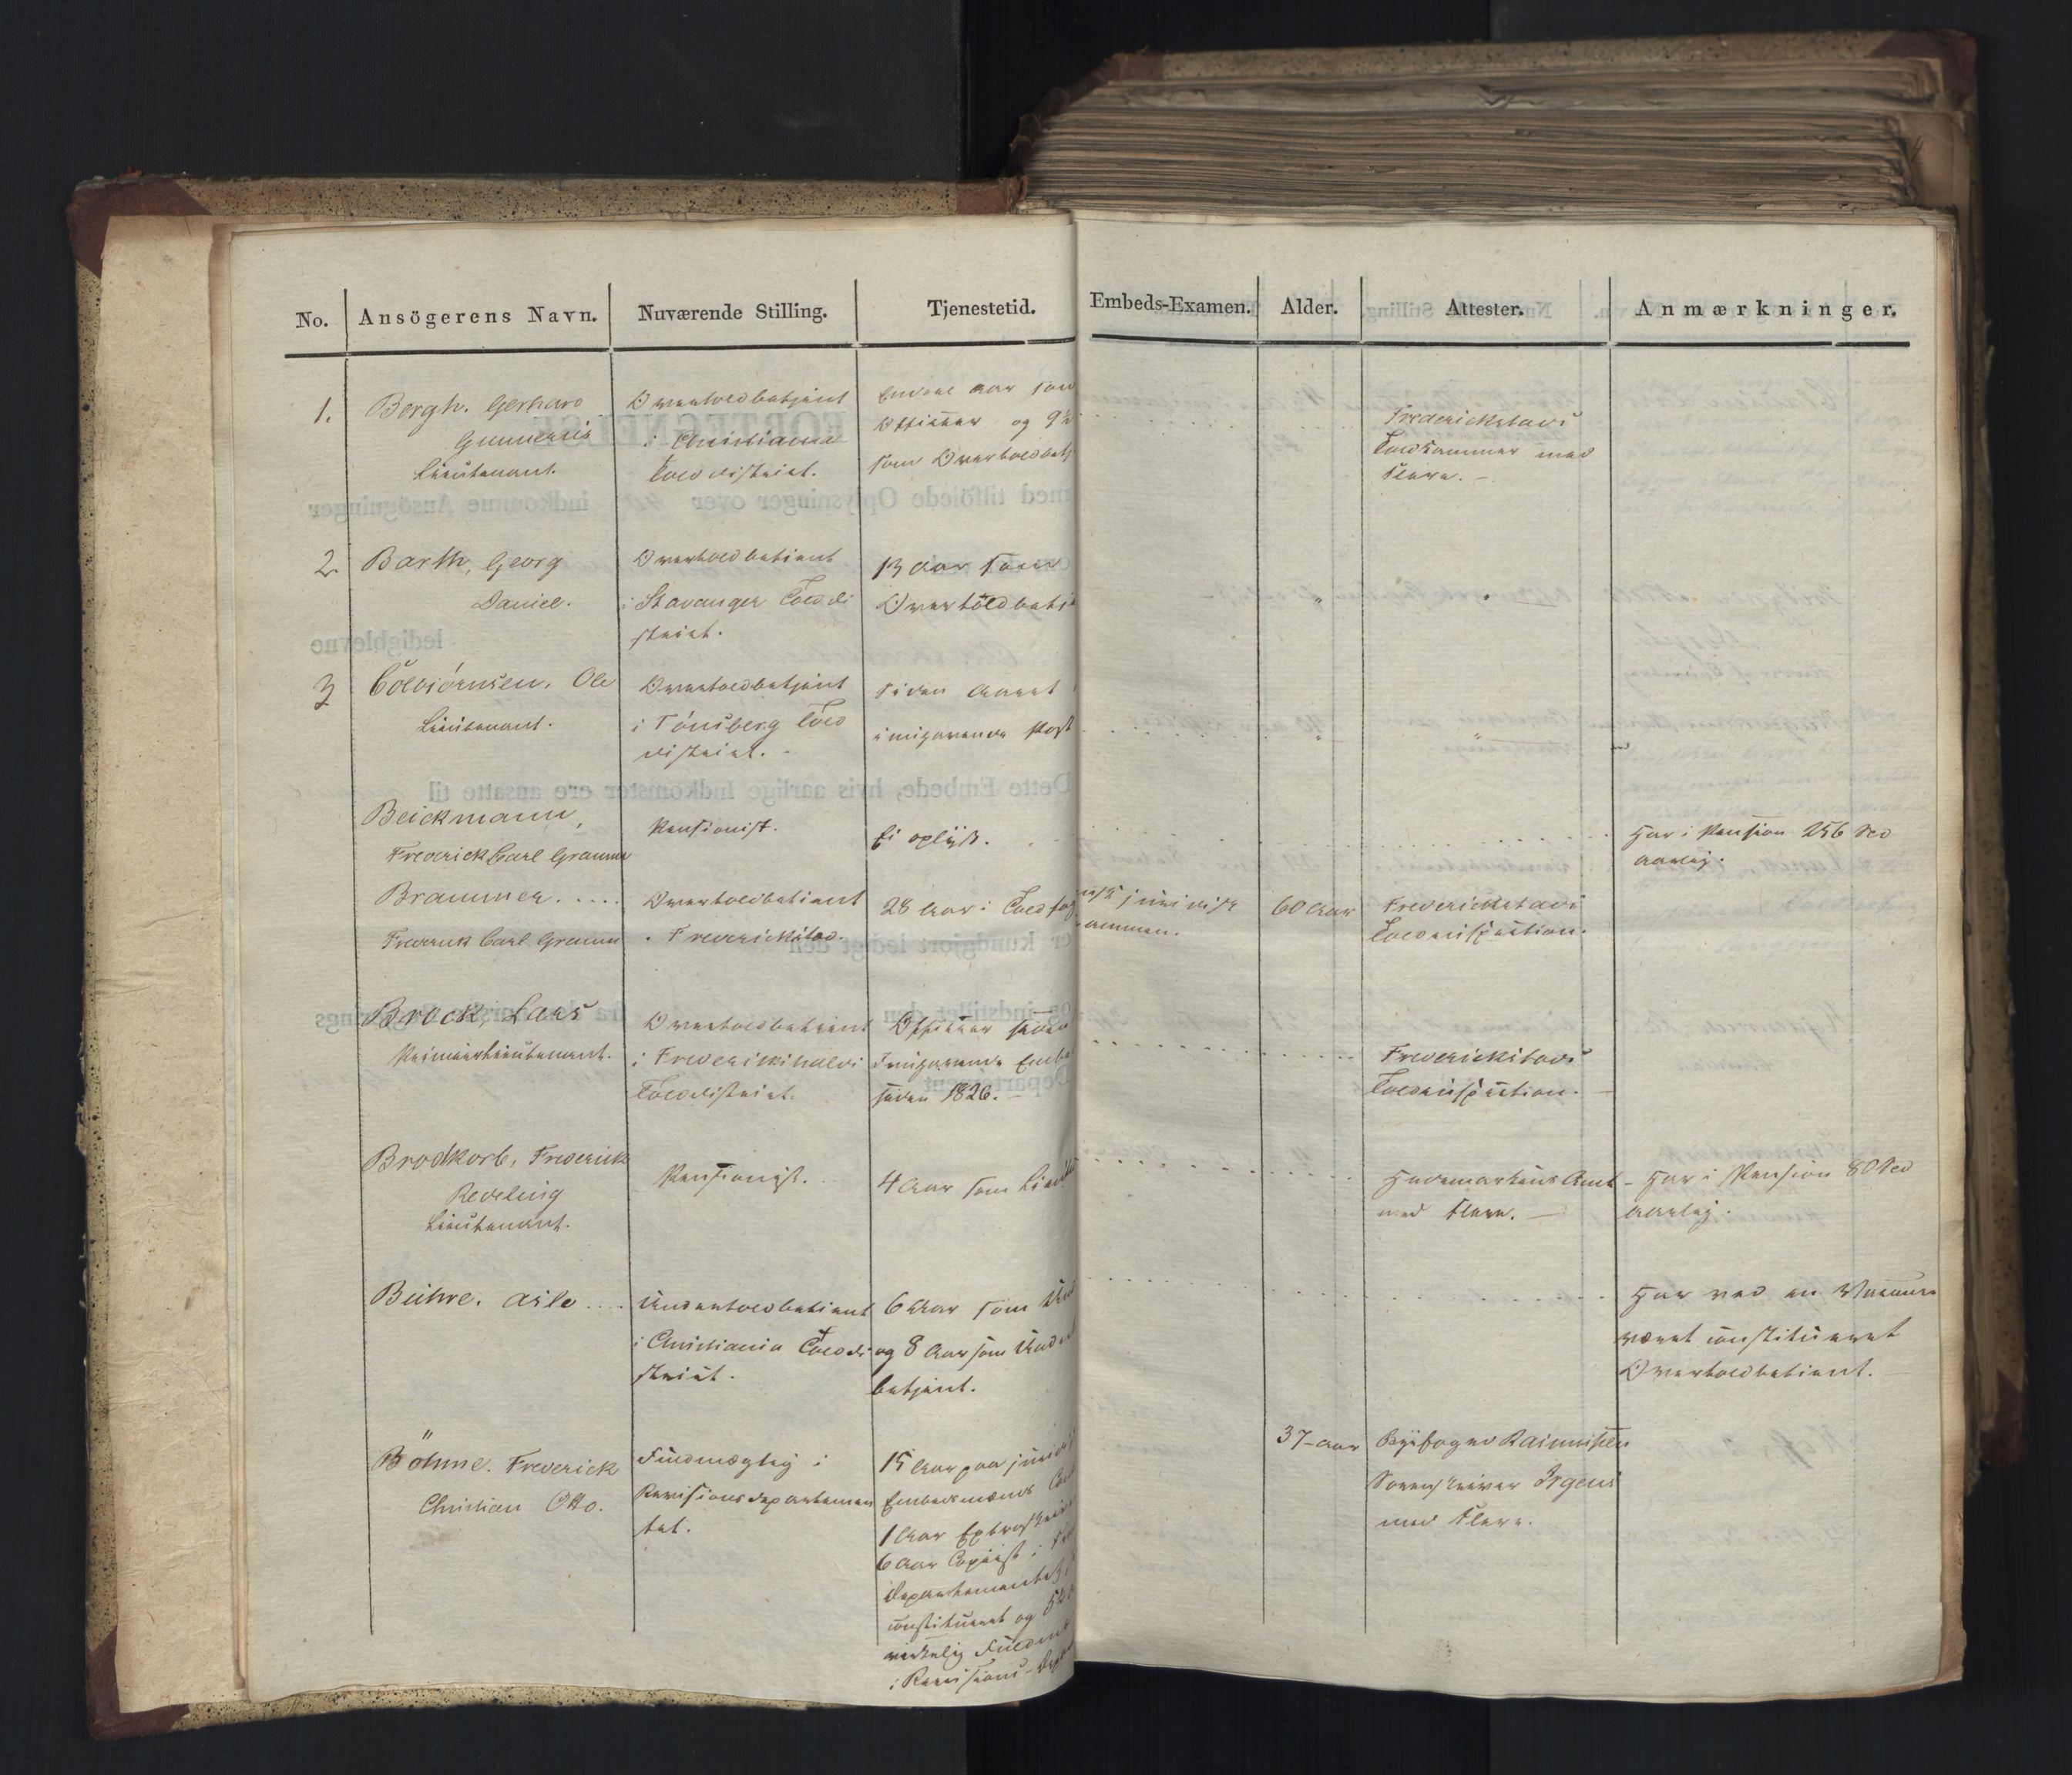 No. Ansögerens Navn. Nuværende Stilling. Tjenestetid. Embeds-Examen. Alder. Attester. Anmærkninger.
1.
Bergh. Gerhard
Lieutenant.
Overtoldbetjent
i Christiania
Tolddistrict.
Officeer og 9½
som Overtoldbetj
Frederichstads
Toldkammer med
Flere. -
2
Barth, Georg
Daniel.
Overtoldbetient
i Stavanger Tolddi
strict.
13 Aar som
Overtoldbetj
3
Colbiörnsen. Ole
Lieutenant.
Overtoldbetjent
i Tönsberg Told
district. -
siden Aaret
inigarende Post
Beichmann,
Frederich Carl Gramm
Pensionist.
Ei oplyst.
Har i Pension 256 Spd
aarlig.
Brammer. ....
Frederick Carl Gramm
Overtoldbetient
Frederichstad.
28 Aar i Toldfag
juridisk
examen.
60 Aar
Frederichstads
Toldinspection.
Brock, Lars
Premierlieutenant.
Overtoldbetient
i Frederichshalds
Tolddistrict.
Officeer siden
siden 1826.
Frederichstads
Toldinspection.
Brodkorb, Frederick
Lieutenant.
Pensionist.
4 Aar som Lieut
Hedemarkens Amt
med Flere.
- Har i Pension 80 Spd
aarlig.
Buhre. Asle ....
Undertoldbetient
i Christiania Tolddi
strict.
6 Aar som Und
og 8 Aar som Undert
betjent.
Har ved en Vacance
været constitueret
Overtoldbetient.
Böhme. Frederick
Christian Otto.
Fuldmægtig i
Revisionsdepartemen
tet.
15 Aar paa juridi
Embedsmænds Con
1 Aar Extraskriv
6 Aar Copiist i
Departementet,
constitueret og
virkelig Fuldm
i Revisions-Dep
37-aar
Byefoged Rasmussen
Sorenskriver Irgens
med Flere.